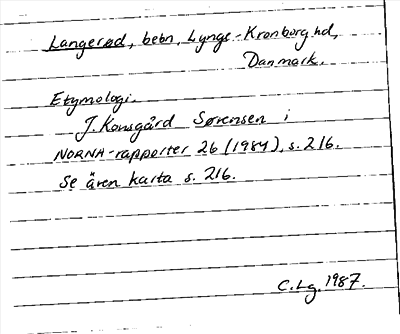 Langerød, bebn, Lynge-Kronborg hd,
Danmark.
Etymologi.
J. Kousgård Sørensen i
NORNA-rapporter 26 (1984), s. 216.
Se även karta s. 216.
C. Lg. 1987.